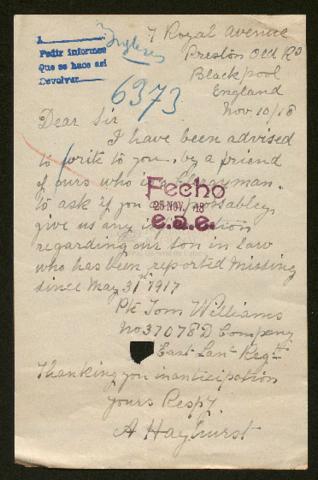 A
Pedir informes
Que se haos asi
Devolver
Ingleses
7 Royal Avenue
Preston Old Rd
Blackpool
England
Nov 10/18
6373
Dear Sir
I have been advised
to write to you, by a friend
of ours who is a Clergyman.
to ask if you could possabley
give us any information
regarding our son in law
who has been reported Missing
since May 31st 1917
Fecho
25 NOV. 18
e.a.e.
Pte Tom Williams
No 37078 D. Company
East Lan Regt
Thanking you in anticipation
yours Respy.
A Hayhurst